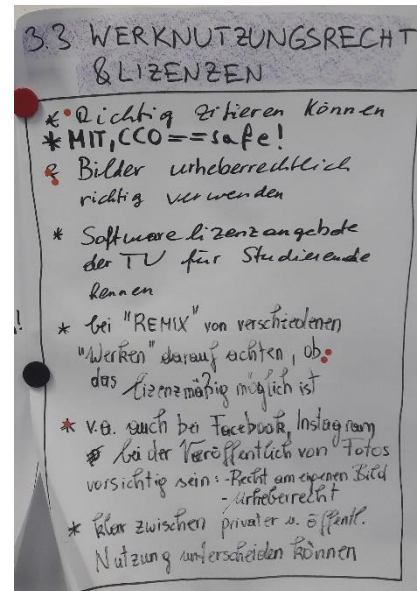 3.3 WERKNUTZUNGSRECHT
& LIZENZEN
* Richtig zitieren können
* MIT, CC0 == safe!
* Bilder urheberrechtlich
richtig verwenden
* Softwarelizenzangebote
der TU für Studierende
kennen
* bei "REMIX" von verschiedenen
"Werken" darauf achten, ob
das lizenzmäßig möglich ist
* v.a. auch bei Facebook, Instagram
bei der Veröffentlich von Fotos
vorsichtig sein: - Recht am eigenen Bild
- Urheberrecht
* klar zwischen privater u. öffentl.
Nutzung unterscheiden können